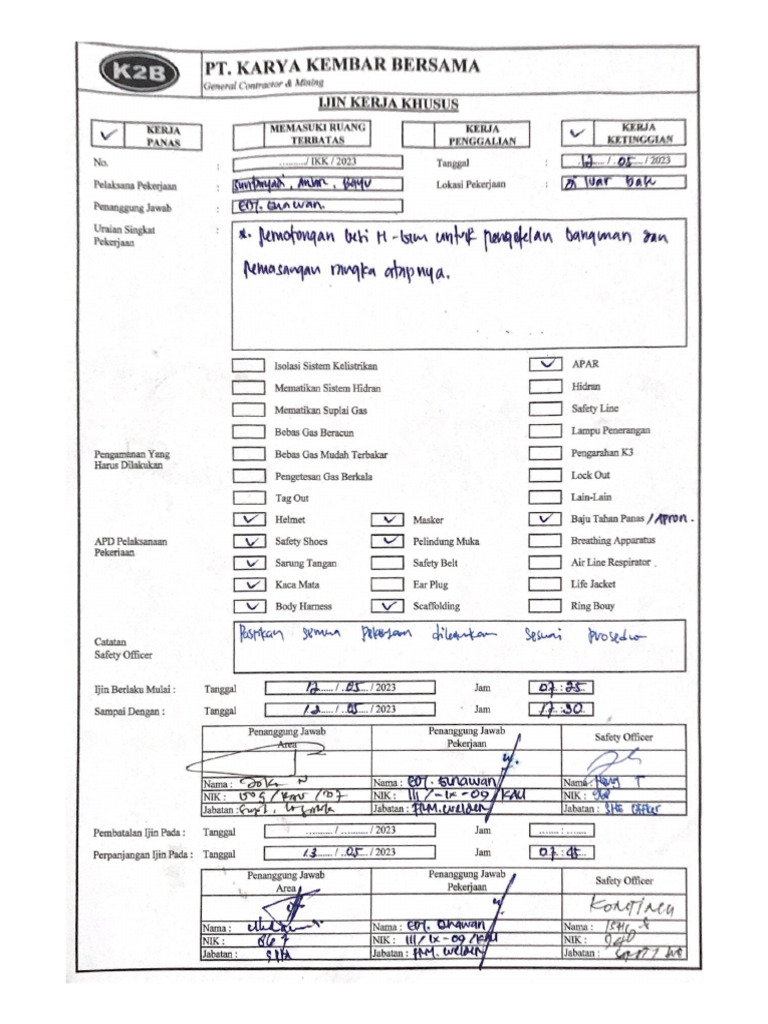 K2B PT. KARYA KEMBAR BERSAMA
General Contractor & Mining
IJIN KERJA KHUSUS
KERJA PANAS MEMASUKI RUANG TERBATAS KERJA PENGGALIAN KERJA KETINGGIAN
No. : ........../ IKK / 2023 Tanggal : 12 / 05 / 2023
Pelaksana Pekerjaan : Lokasi Pekerjaan : Di luar
Penanggung Jawab : EDY. Gunawan
Uraian Singkat Pekerjaan :
*. Pemotongan besi H-bem untuk bangunan dan
Pemasangan rangka atapnya.
Isolasi Sistem Kelistrikan APAR
Mematikan Sistem Hidran Hidran
Mematikan Suplai Gas Safety Line
Bebas Gas Beracun Lampu Penerangan
Pengamanan Yang Harus Dilakukan Bebas Gas Mudah Terbakar Pengarahan K3
Pengetesan Gas Berkala Lock Out
Tag Out Lain-Lain
Helmet Masker Baju Tahan Panas / Apron.
APD Pelaksanaan Pekerjaan Safety Shoes Pelindung Muka Breathing Apparatus
Sarung Tangan Safety Belt Air Line Respirator
Kaca Mata Ear Plug Life Jacket
Body Harness Scaffolding Ring Bouy
Catatan Safety Officer
Pastikan semua pekerjaan dilakukan sesuai prosedur
Ijin Berlaku Mulai : Tanggal 12 / 05 / 2023 Jam 07 : 25
Sampai Dengan : Tanggal 12 / 05 / 2023 Jam 17 : 30
Penanggung Jawab Area Penanggung Jawab Pekerjaan Safety Officer
Nama : Nama : EDY. Gunawan Nama :
NIK : NIK : III / IX - 09 / KAU NIK :
Jabatan : Jabatan : FRM. Welder Jabatan : SHE Officer
Pembatalan Ijin Pada : Tanggal ........../ ........../ 2023 Jam ...... : ......
Perpanjangan Ijin Pada : Tanggal 13 / 05 / 2023 Jam 07 : 45
Penanggung Jawab Area Penanggung Jawab Pekerjaan Safety Officer
Nama : Nama : EDY. Gunawan Nama :
NIK : 867 NIK : III / IX - 09 / KAU NIK :
Jabatan : Jabatan : FRM. Welder Jabatan :